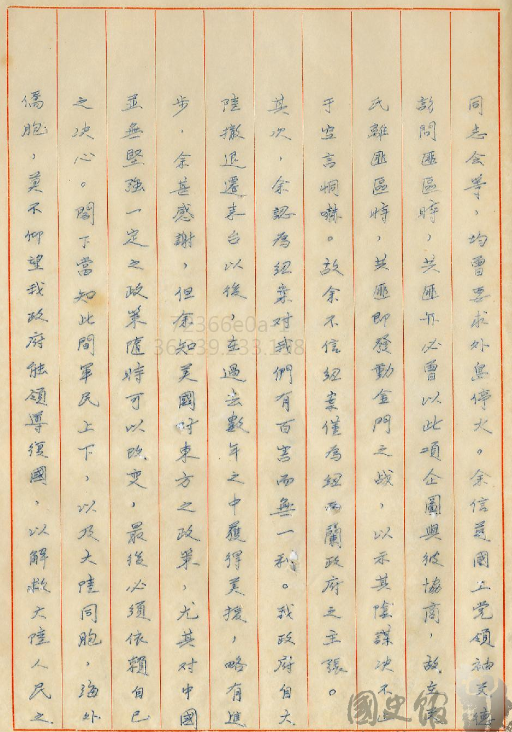 同志会等，均曾要求外島停火。余信英國工党領袖艾德
訪問匪區時，共匪亦必曾以此項企圖與彼協商，故立
氏離匪區時，共匪即發動金門之战，以示其陰謀决不
于空言恫嚇。故余不信紐案僅為紐西蘭政府之主張。
其次，余認為紐案对我們有百害而無一利。我政府自大
陸撤退遷來台以後，在過去數年之中獲得美援，略有進
步，余甚感謝，但余知美國对東方之政策，尤其对中國
並無堅强一定之政策隨時可以改变，最後必須依賴自己
之决心。閣下當知此間軍民上下，以及大陸同胞，海外
僑胞，莫不仰望我政府能領導復國，以解救大陸人民之
國史館
72366e0a
36.239.233.118